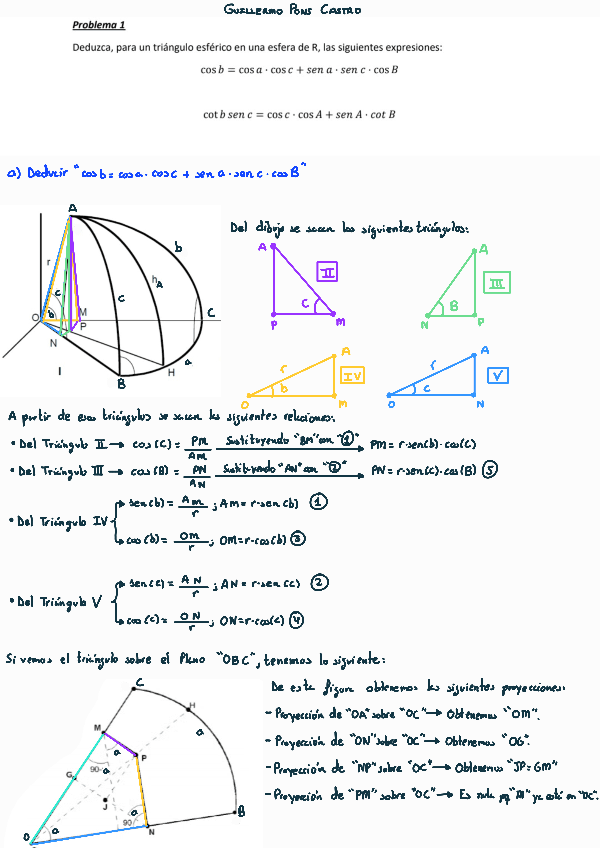 GUILLERMO PONS CASTRO
Problema 1
Deduzca, para un triángulo esférico en una esfera de R, las siguientes expresiones:
cos b = cos a · cos c + sen a · sen c · cos B
cot b sen c = cos c · cos A + sen A · cot B
a) Deducir "cos b = cos a · cos c + sen a · sen c · cos B"
Del dibujo se sacan los siguientes triángulos:
A
b
r
c
h_A
c
b
O
M
P
C
N
a
B
H
I
A
II
C
P
M
A
III
B
N
P
A
r
b
IV
O
M
A
r
c
V
O
N
A partir de esos triángulos se sacan las siguientes relaciones:
• Del Triángulo II → cos(C) = PM/AM Sustituyendo "BM" con "①" → PM = r·sen(b)·cos(C)
• Del Triángulo III → cos(B) = PN/AN Sustituyendo "AN" con "②" → PN = r·sen(c)·cos(B) ⑤
• Del Triángulo IV
sen(b) = AM/r ; AM = r·sen(b) ①
cos(b) = OM/r ; OM = r·cos(b) ③
• Del Triángulo V
sen(c) = AN/r ; AN = r·sen(c) ②
cos(c) = ON/r ; ON = r·cos(c) ④
Si vemos el triángulo sobre el Plano "OBC", tenemos lo siguiente:
C
H
M
a
a
P
G
90-a
a
J
90
O
a
N
B
De esta figura obtenemos las siguientes proyecciones:
- Proyección de "OA" sobre "OC" → Obtenemos "OM".
- Proyección de "ON" sobre "OC" → Obtenemos "OG".
- Proyección de "NP" sobre "OC" → Obtenemos "JP = GM"
- Proyección de "PM" sobre "OC" → Es nula pq "M" ya está en "OC".